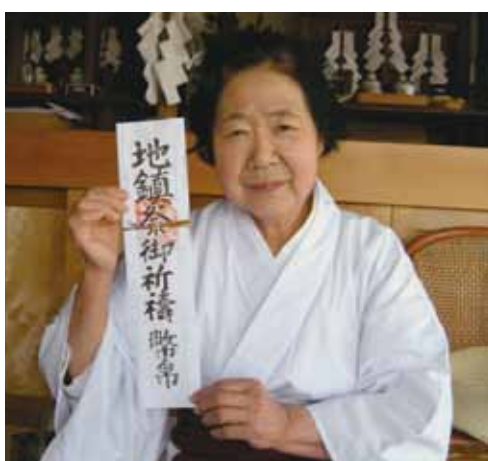 地鎮祭御祈禱 幣帛